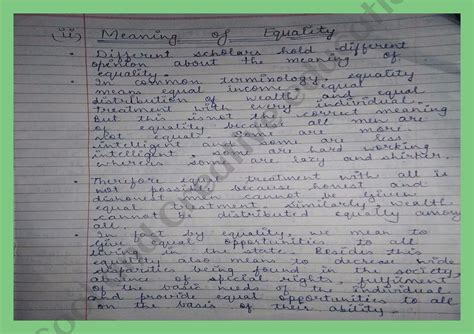 (ii) Meaning of Equality
• Different scholars hold different
opinion about the meaning of
equality.
• In common terminology, equality
means equal income, equal
distribution of wealth and equal
treatment with every individual.
But this is not the correct meaning
of equality because all men are
not equal. Some are more
intelligent and some are less
intelligent, some are hard working
whereas some are lazy and shirker.
• Therefore equal treatment with all is
not possible because honest and
dishonest men cannot be given
equal treatment similarly, wealth
cannot be distributed equally among
all.
• In fact by equality, we mean to
give equal opportunities to all
living in the state. Besides this
equality also means to decrease wide
disparities being found in the society,
absence of special rights, fulfilment
of the basic needs of the individual
and provide equal opportunities to all
on the basis of their ability.